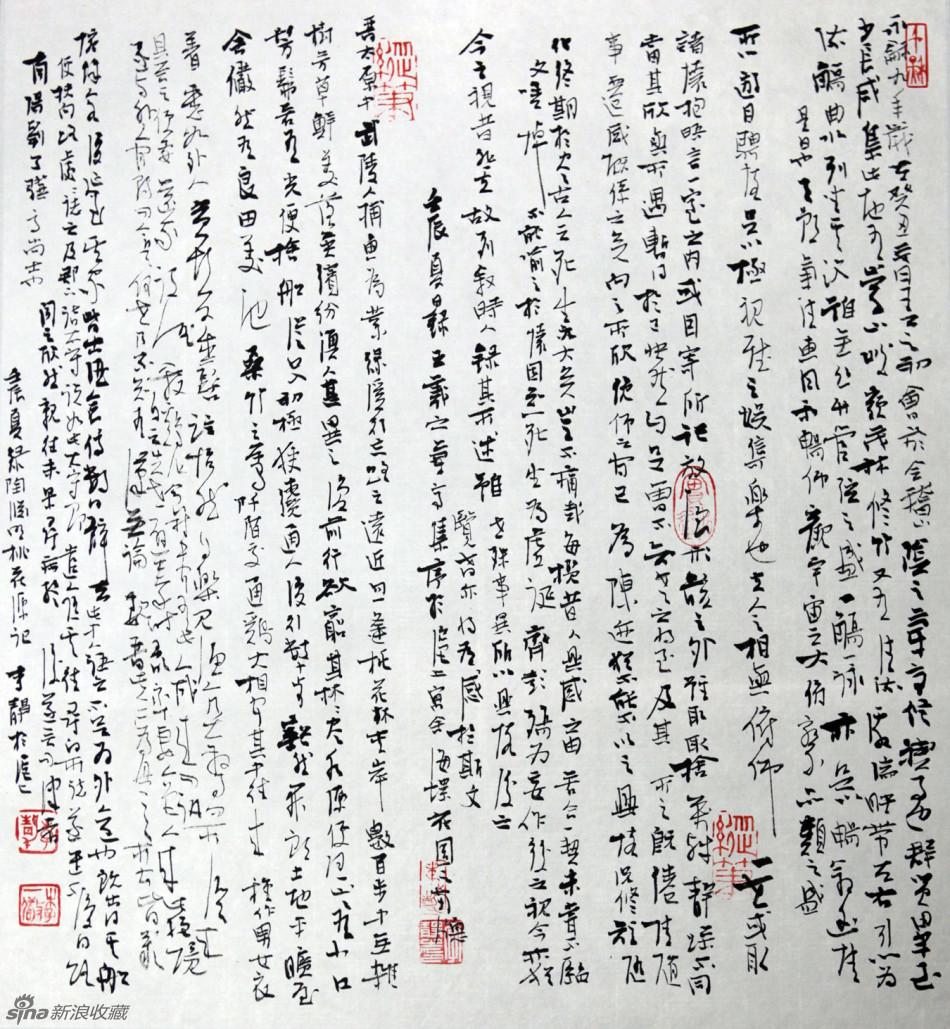 永和九年歲在癸丑暮春之初會於會稽山陰之蘭亭修禊事也群賢畢至
少長咸集此地有崇山峻嶺茂林修竹又有清流激湍映帶左右引以為
流觴曲水列坐其次雖無絲竹管弦之盛一觴一詠亦足以暢敘幽情
是日也天朗氣清惠風和暢仰觀宇宙之大俯察品類之盛
所以遊目騁懷足以極視聽之娛信可樂也夫人之相與俯仰一世或取
諸懷抱晤言一室之內或因寄所託放浪形骸之外雖取捨萬殊靜躁不同
當其欣於所遇暫得於己快然自足曾不知老之將至及其所之既倦情隨
事遷感慨係之矣向之所欣俛仰之間已為陳迹猶不能不以之興懷況修短隨
化終期於盡古人云死生亦大矣豈不痛哉每攬昔人興感之由若合一契未嘗不臨
文嗟悼不能喻之於懷固知死生為虛誕齊彭殤為妄作後之視今亦猶
今之視昔悲夫故列敘時人錄其所述雖世殊事異所以興懷後之
覽者亦將有感於斯文
壬辰夏錄王羲之蘭亭集序於滬上寓舍海
晉太原中武陵人捕魚為業緣溪行忘路之遠近忽逢桃花林夾岸數百步中無雜
樹芳草鮮美落英繽紛漁人甚異之復前行欲窮其林林盡水源便得山山有小口
髣髴若有光便捨船從口入初極狹纔通人復行數十步豁然開朗土地平曠屋
舍儼然有良田美池桑竹之屬阡陌交通雞犬相聞其中往來種作男女衣
著悉如外人黃髮垂髫並怡然自樂見漁人乃大驚問所從來
具答之便要還家設酒殺雞作食村中聞有此人咸來問訊自云先世避秦時亂率妻子邑人來此絕境
遂與外人間隔問今是何世乃不知有漢無論魏晉此人一一為具言所聞皆歎
餘人各復延至其家皆出酒食停數日辭去此中人語云不足為外人道也既出得其船
便扶向路處處誌之及郡下詣太守說如此太守即遣人隨其往尋向所誌遂迷不復得路
南陽劉子驥高尚士聞之欣然親往未果尋病終後遂無問津者
壬辰夏錄陶淵明桃花源記 李靜於滬上
sina新浪收藏